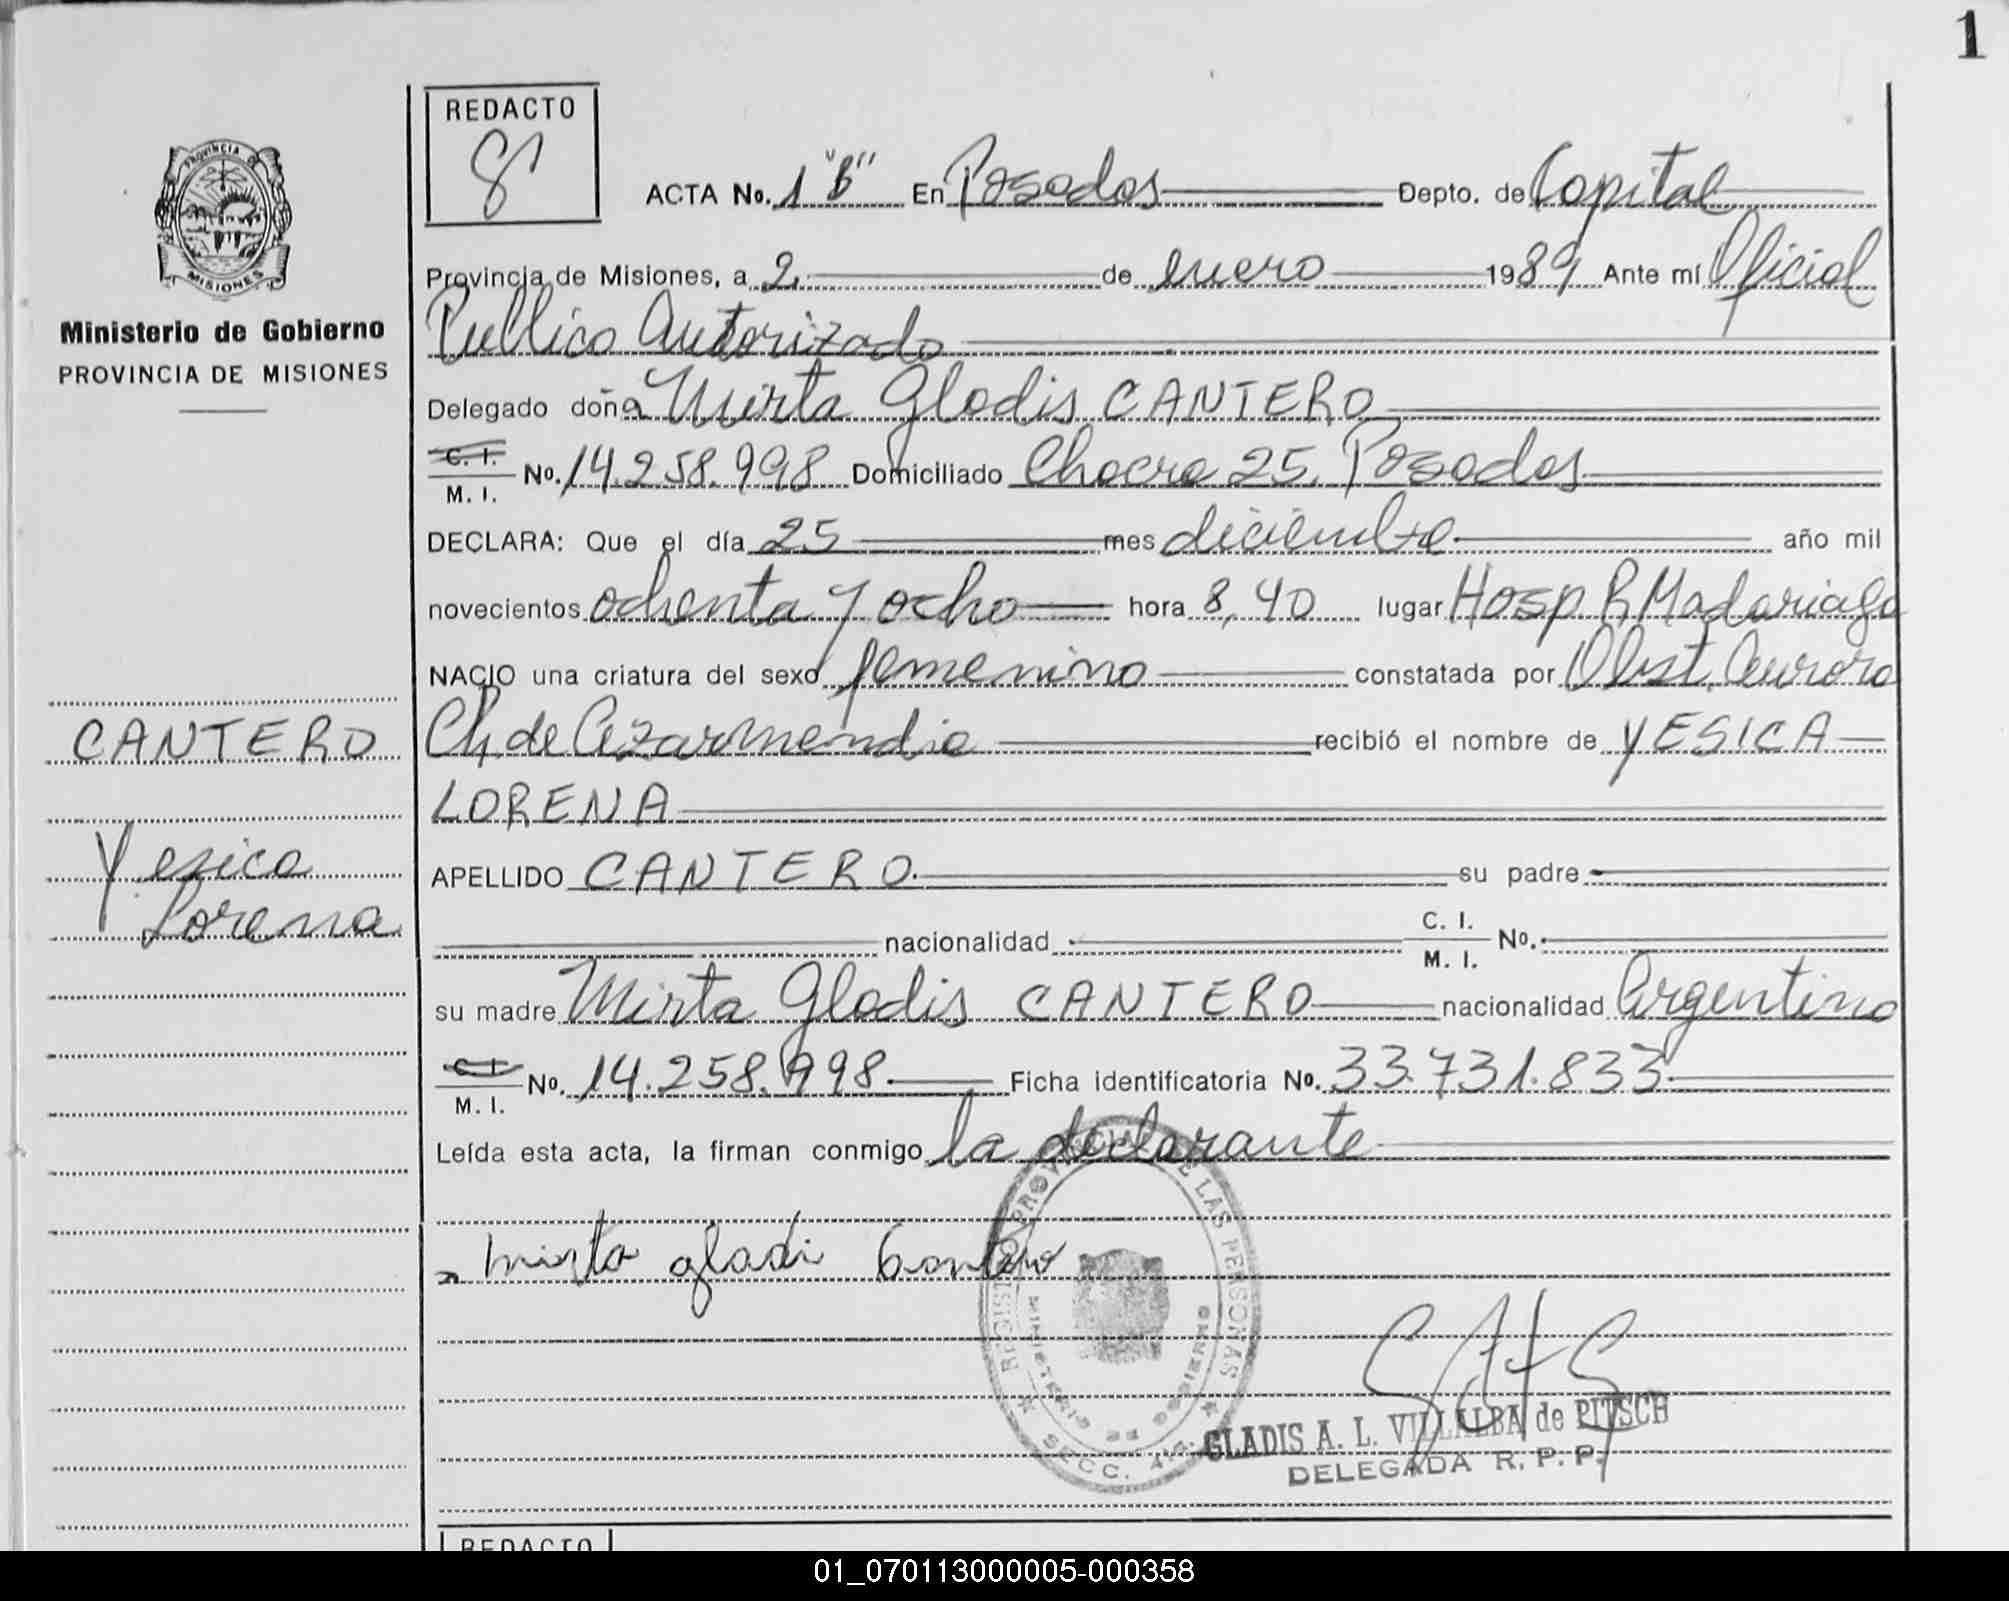 1
REDACTO
8
PROVINCIA DE
MISIONES
Ministerio de Gobierno
PROVINCIA DE MISIONES
ACTA No. 1 "B" En Posadas Depto. de Capital
Provincia de Misiones, a 2 de enero 1989 Ante mí Oficial
Publico Autorizado
Delegado doña Mirta Gladis CANTERO
C. I.
M. I. No. 14.258.998 Domiciliado Chacra 25. Posadas
DECLARA: Que el día 25 mes diciembre año mil
novecientos ochenta y ocho hora 8,40 lugar Hosp. R. Madariaga
NACIO una criatura del sexo femenino constatada por Obst. Aurora
Ch. de Azarmendia recibió el nombre de YESICA
LORENA
CANTERO
Yesica
Lorena
APELLIDO CANTERO. su padre
nacionalidad C. I.
M. I. No.
su madre Mirta Gladis CANTERO nacionalidad Argentina
C. I.
M. I. No. 14.258.998. Ficha identificatoria No. 33.731.833
Leída esta acta, la firman conmigo la declarante
mirta gladi Cantero
REGISTRO PROVINCIAL DE LAS PERSONAS
MINISTERIO DE GOBIERNO
SECC.
GLADIS A. L. VILLALBA de PITSCH
DELEGADA R. P. P.
REDACTO
01_070113000005-000358